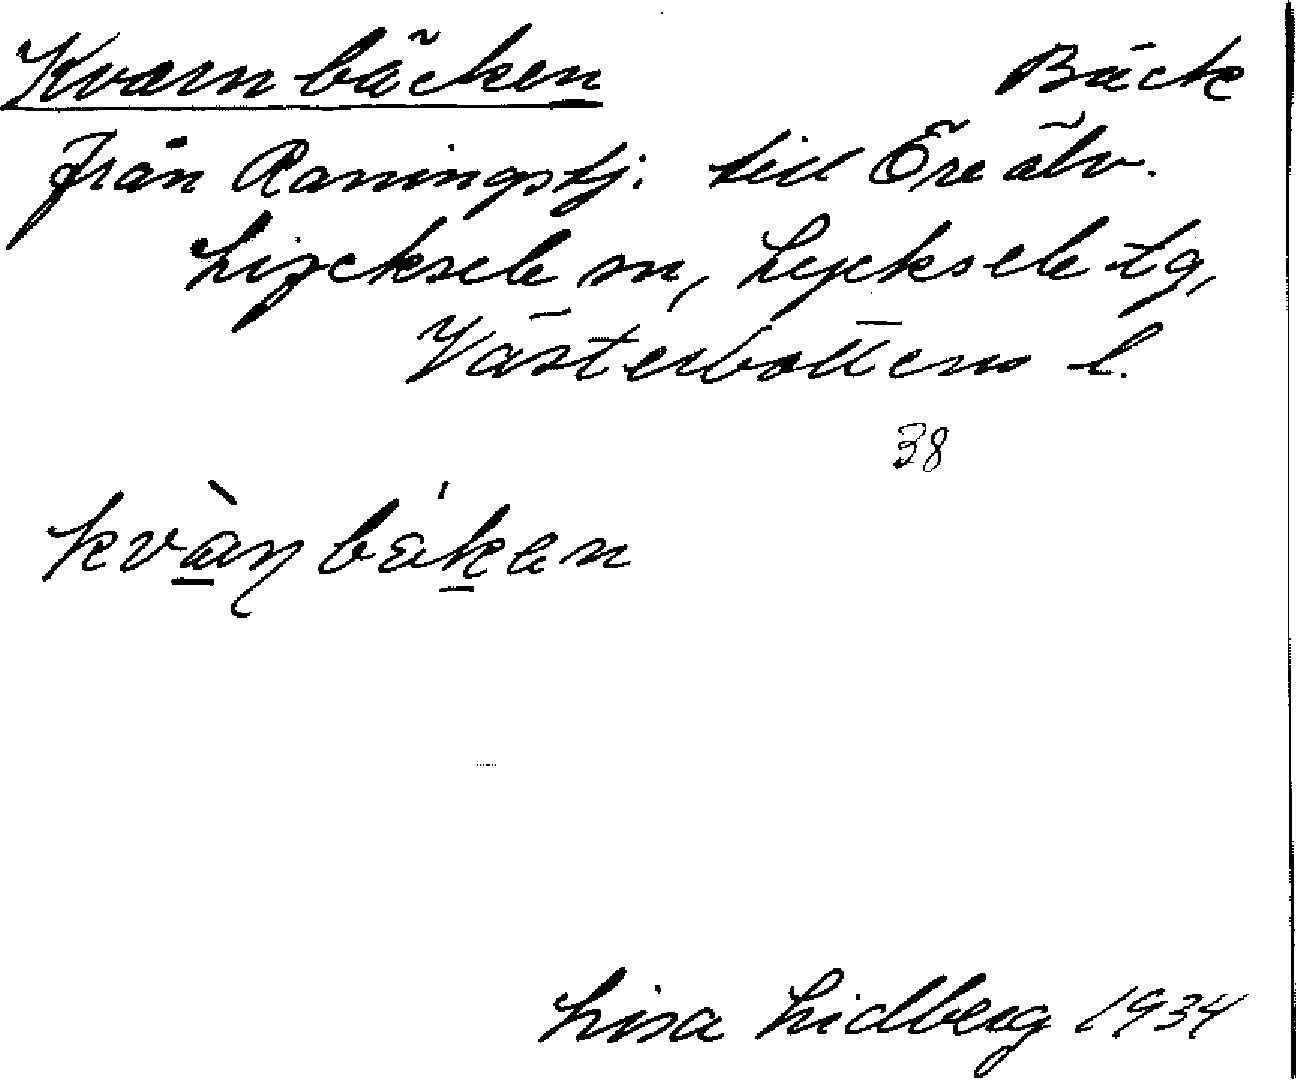 Kvarnbäcken Bäck
från Raningstj. till Öre älv.
Lycksele sn, Lycksele tg,
Västerbottens l.
38
kvàṇbáken
Lisa Lidberg 1934